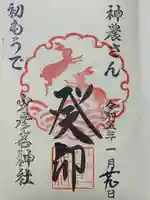 神農さん
令和五年一月
癸卯
初もうで
少彦名神社